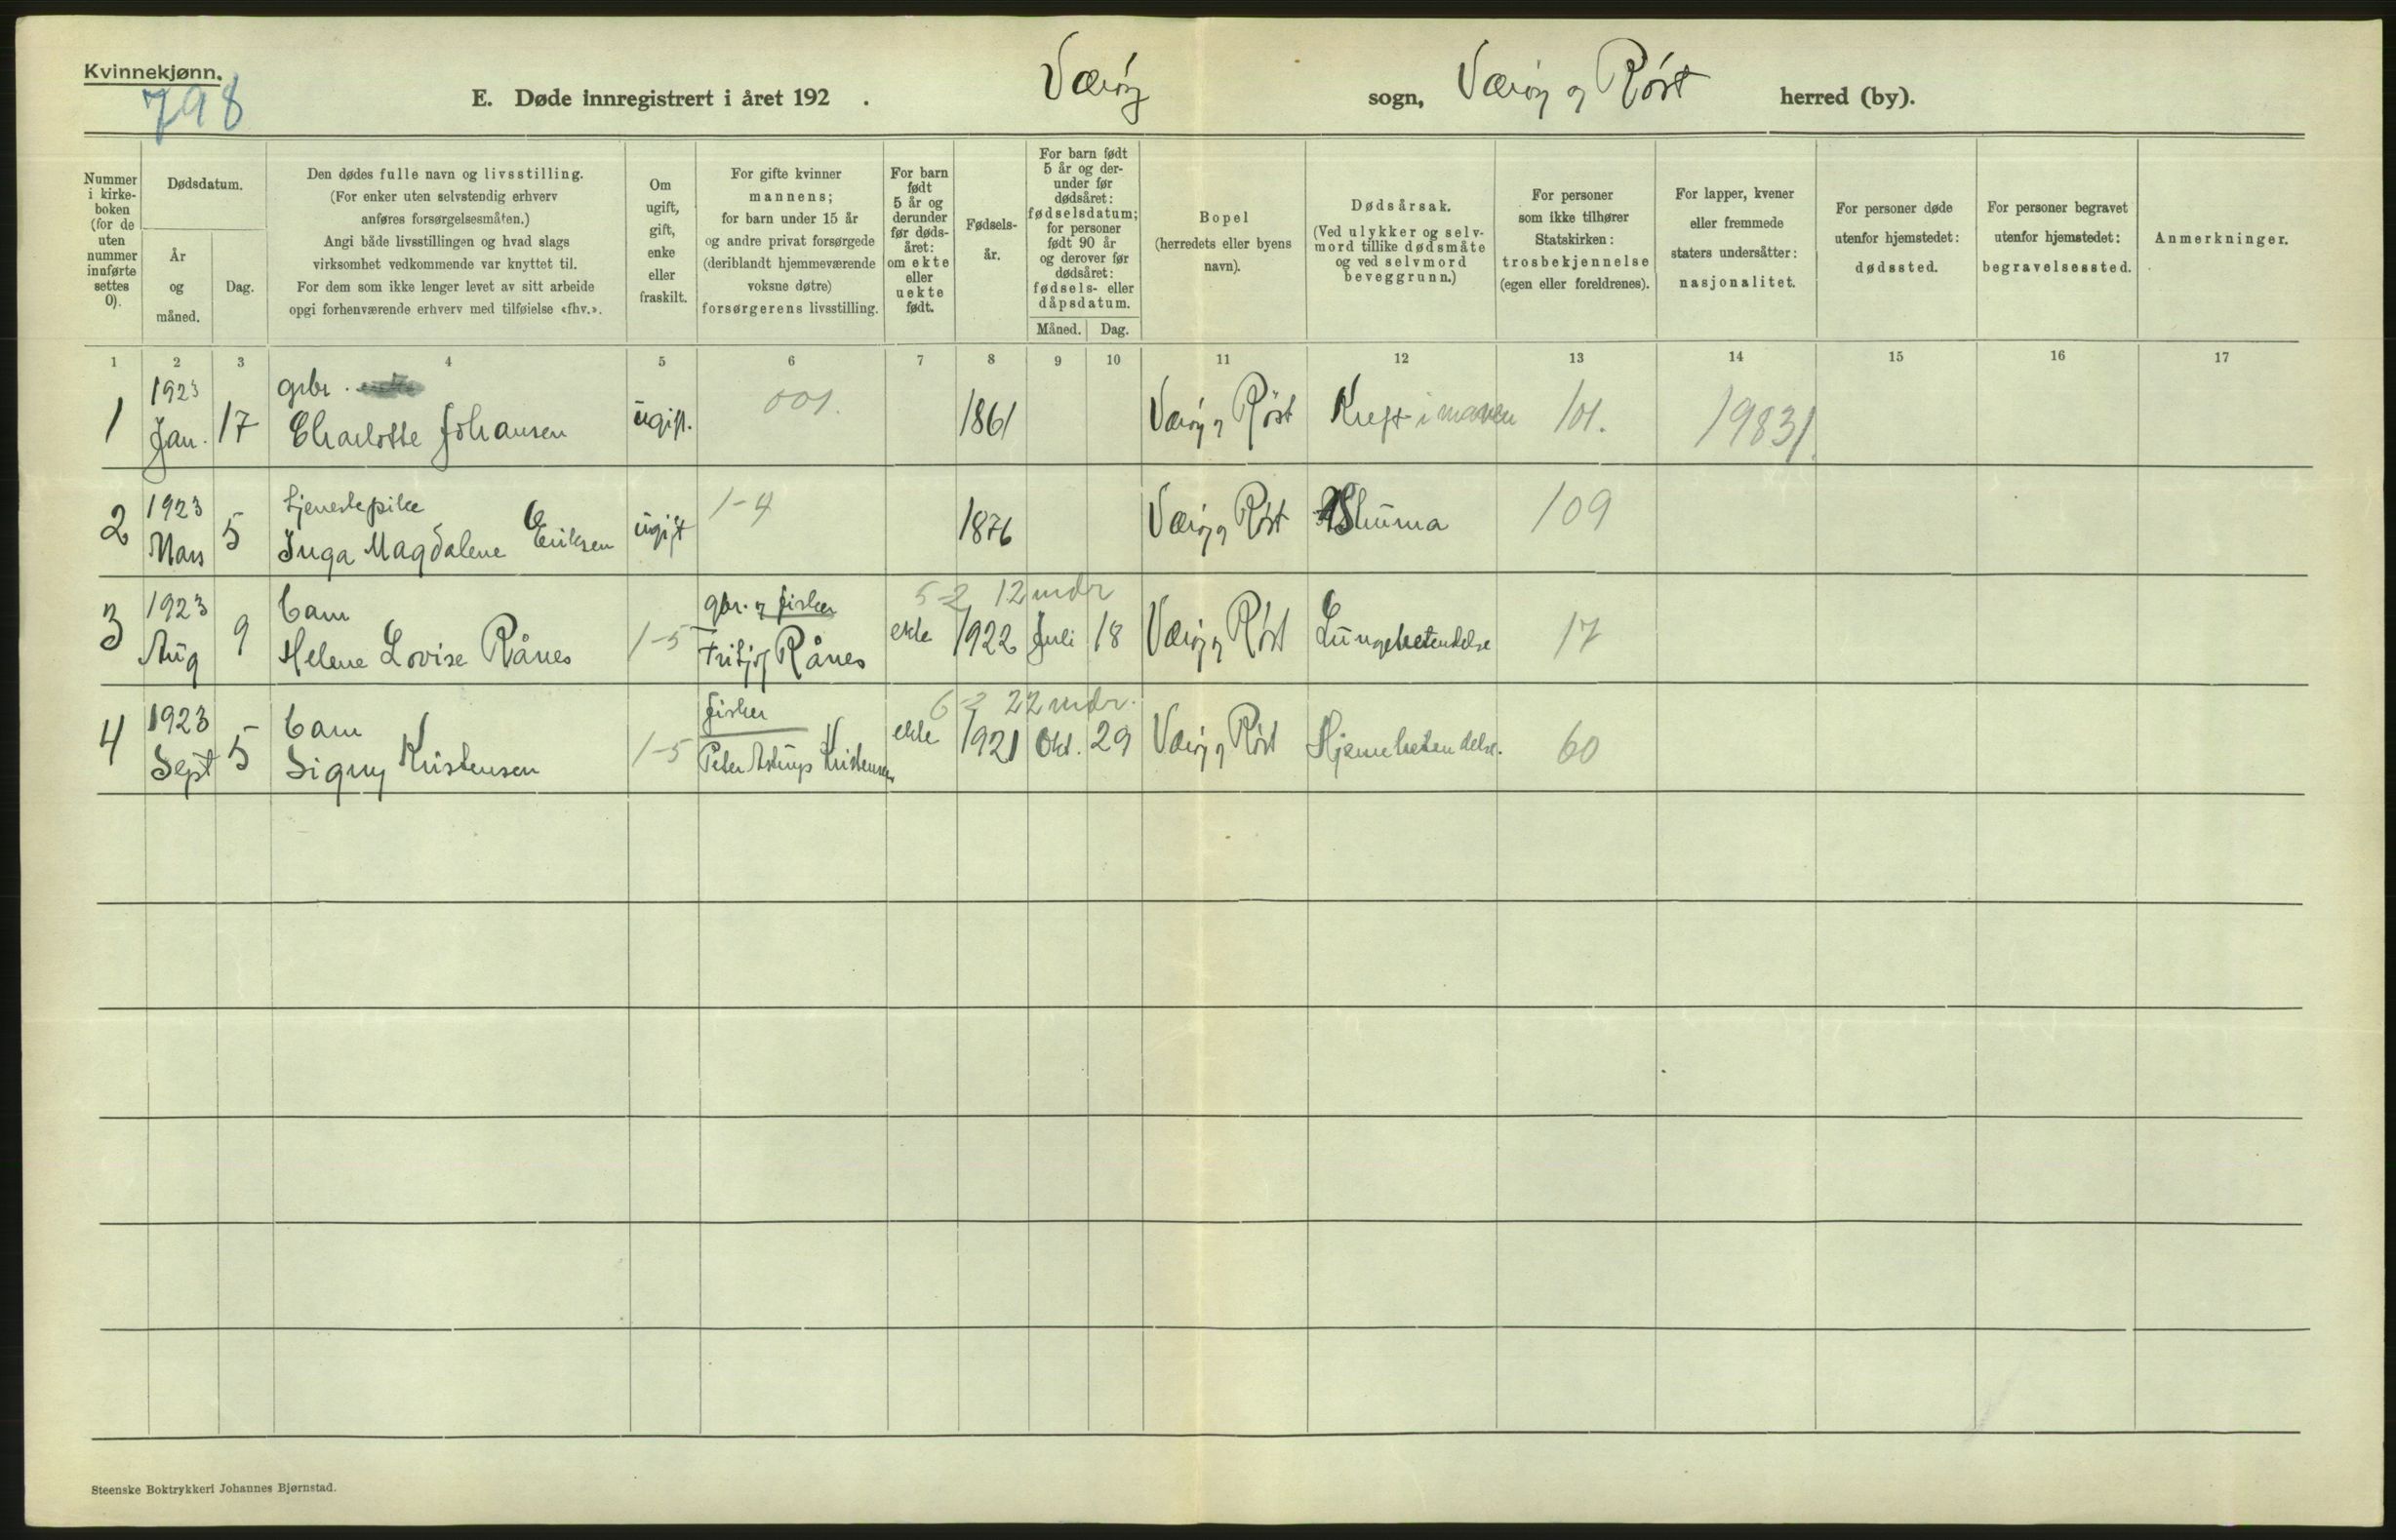 Kvinnekjønn.
798
E. Døde innregistrert i året 192 . Værøy sogn, Værøy og Røst herred (by).
Nummer i kirke- boken (for de uten nummer innførte settes 0).
Dødsdatum.
År og måned.
Dag.
Den dødes fulle navn og livsstilling.
(For enker uten selvstendig erhverv
anføres forsørgelsesmåten.)
Angi både livsstillingen og hvad slags
virksomhet vedkommende var knyttet til.
For dem som ikke lenger levet av sitt arbeide
opgi forhenværende erhverv med tilføielse «fhv.».
Om
ugift,
gift,
enke
eller
fraskilt.
For gifte kvinner
mannens;
for barn under 15 år
og andre privat forsørgede
(deriblandt hjemmeværende
voksne døtre)
forsørgerens livsstilling.
For barn
født
5 år og
derunder
før døds-
året:
om ekte
eller
uekte
født.
Fødsels-
år.
For barn født
5 år og der-
under før
dødsåret:
fødselsdatum;
for personer
født 90 år
og derover før
dødsåret:
fødsels- eller
dåpsdatum.
Måned. Dag.
Bopel
(herredets eller byens
navn).
Dødsårsak.
(Ved ulykker og selv-
mord tillike dødsmåte
og ved selvmord
beveggrunn.)
For personer
som ikke tilhører
Statskirken:
trosbekjennelse
(egen eller foreldrenes).
For lapper, kvener
eller fremmede
staters undersåtter:
nasjonalitet.
For personer døde
utenfor hjemstedet:
dødssted.
For personer begravet
utenfor hjemstedet:
begravelsessted.
Anmerkninger.
1 2 3 4 5 6 7 8 9 10 11 12 13 14 15 16 17
1923 grbr.
1 Jan. 17 Charlotte Johansen ugift. 001. 1861 Værøy og Røst Kreft i maven 101. 19831
1923 tjenestepike 1-4
2 Mars 5 Inga Magdalene Eriksen ugift 1876 Værøy og Røst Struma 109
1923 barn gbr. og fisker 5-2 12 mdr
3 Aug 9 Helene Lovise Rånes 1-5 Fritjof Rånes ekte 1922 Juli 18 Værøy og Røst Lungebetendelse 17
1923 barn fisker 6-2 22 mdr.
4 Sept 5 Signy Kristensen 1-5 Peter Astrup Kristensen ekte 1921 Okt. 29 Værøy og Røst Hjernebetendelse. 60
Steenske Boktrykkeri Johannes Bjørnstad.